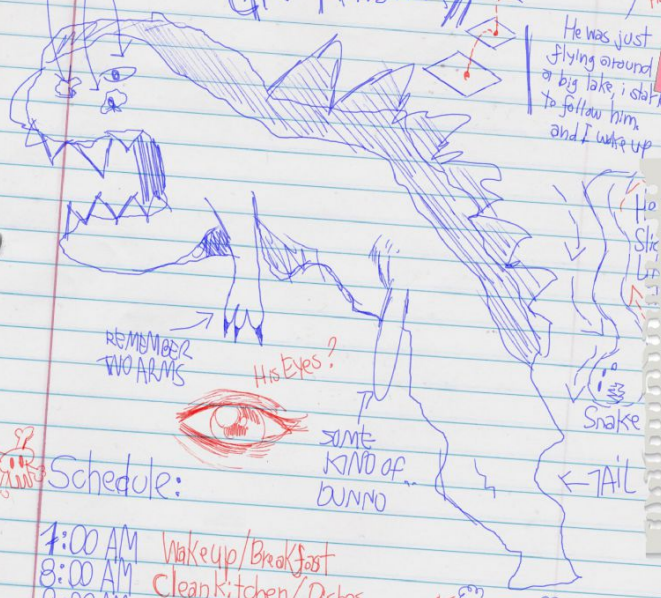 He was just
flying around
a big lake, i start
to follow him,
and I wake up
REMEMBER
TWO ARMS
His Eyes?
SOME
KIND OF...
DUNNO
Snake
TAIL
Schedule:
7:00 AM Wakeup/Breakfast
8:00 AM Clean Kitchen/